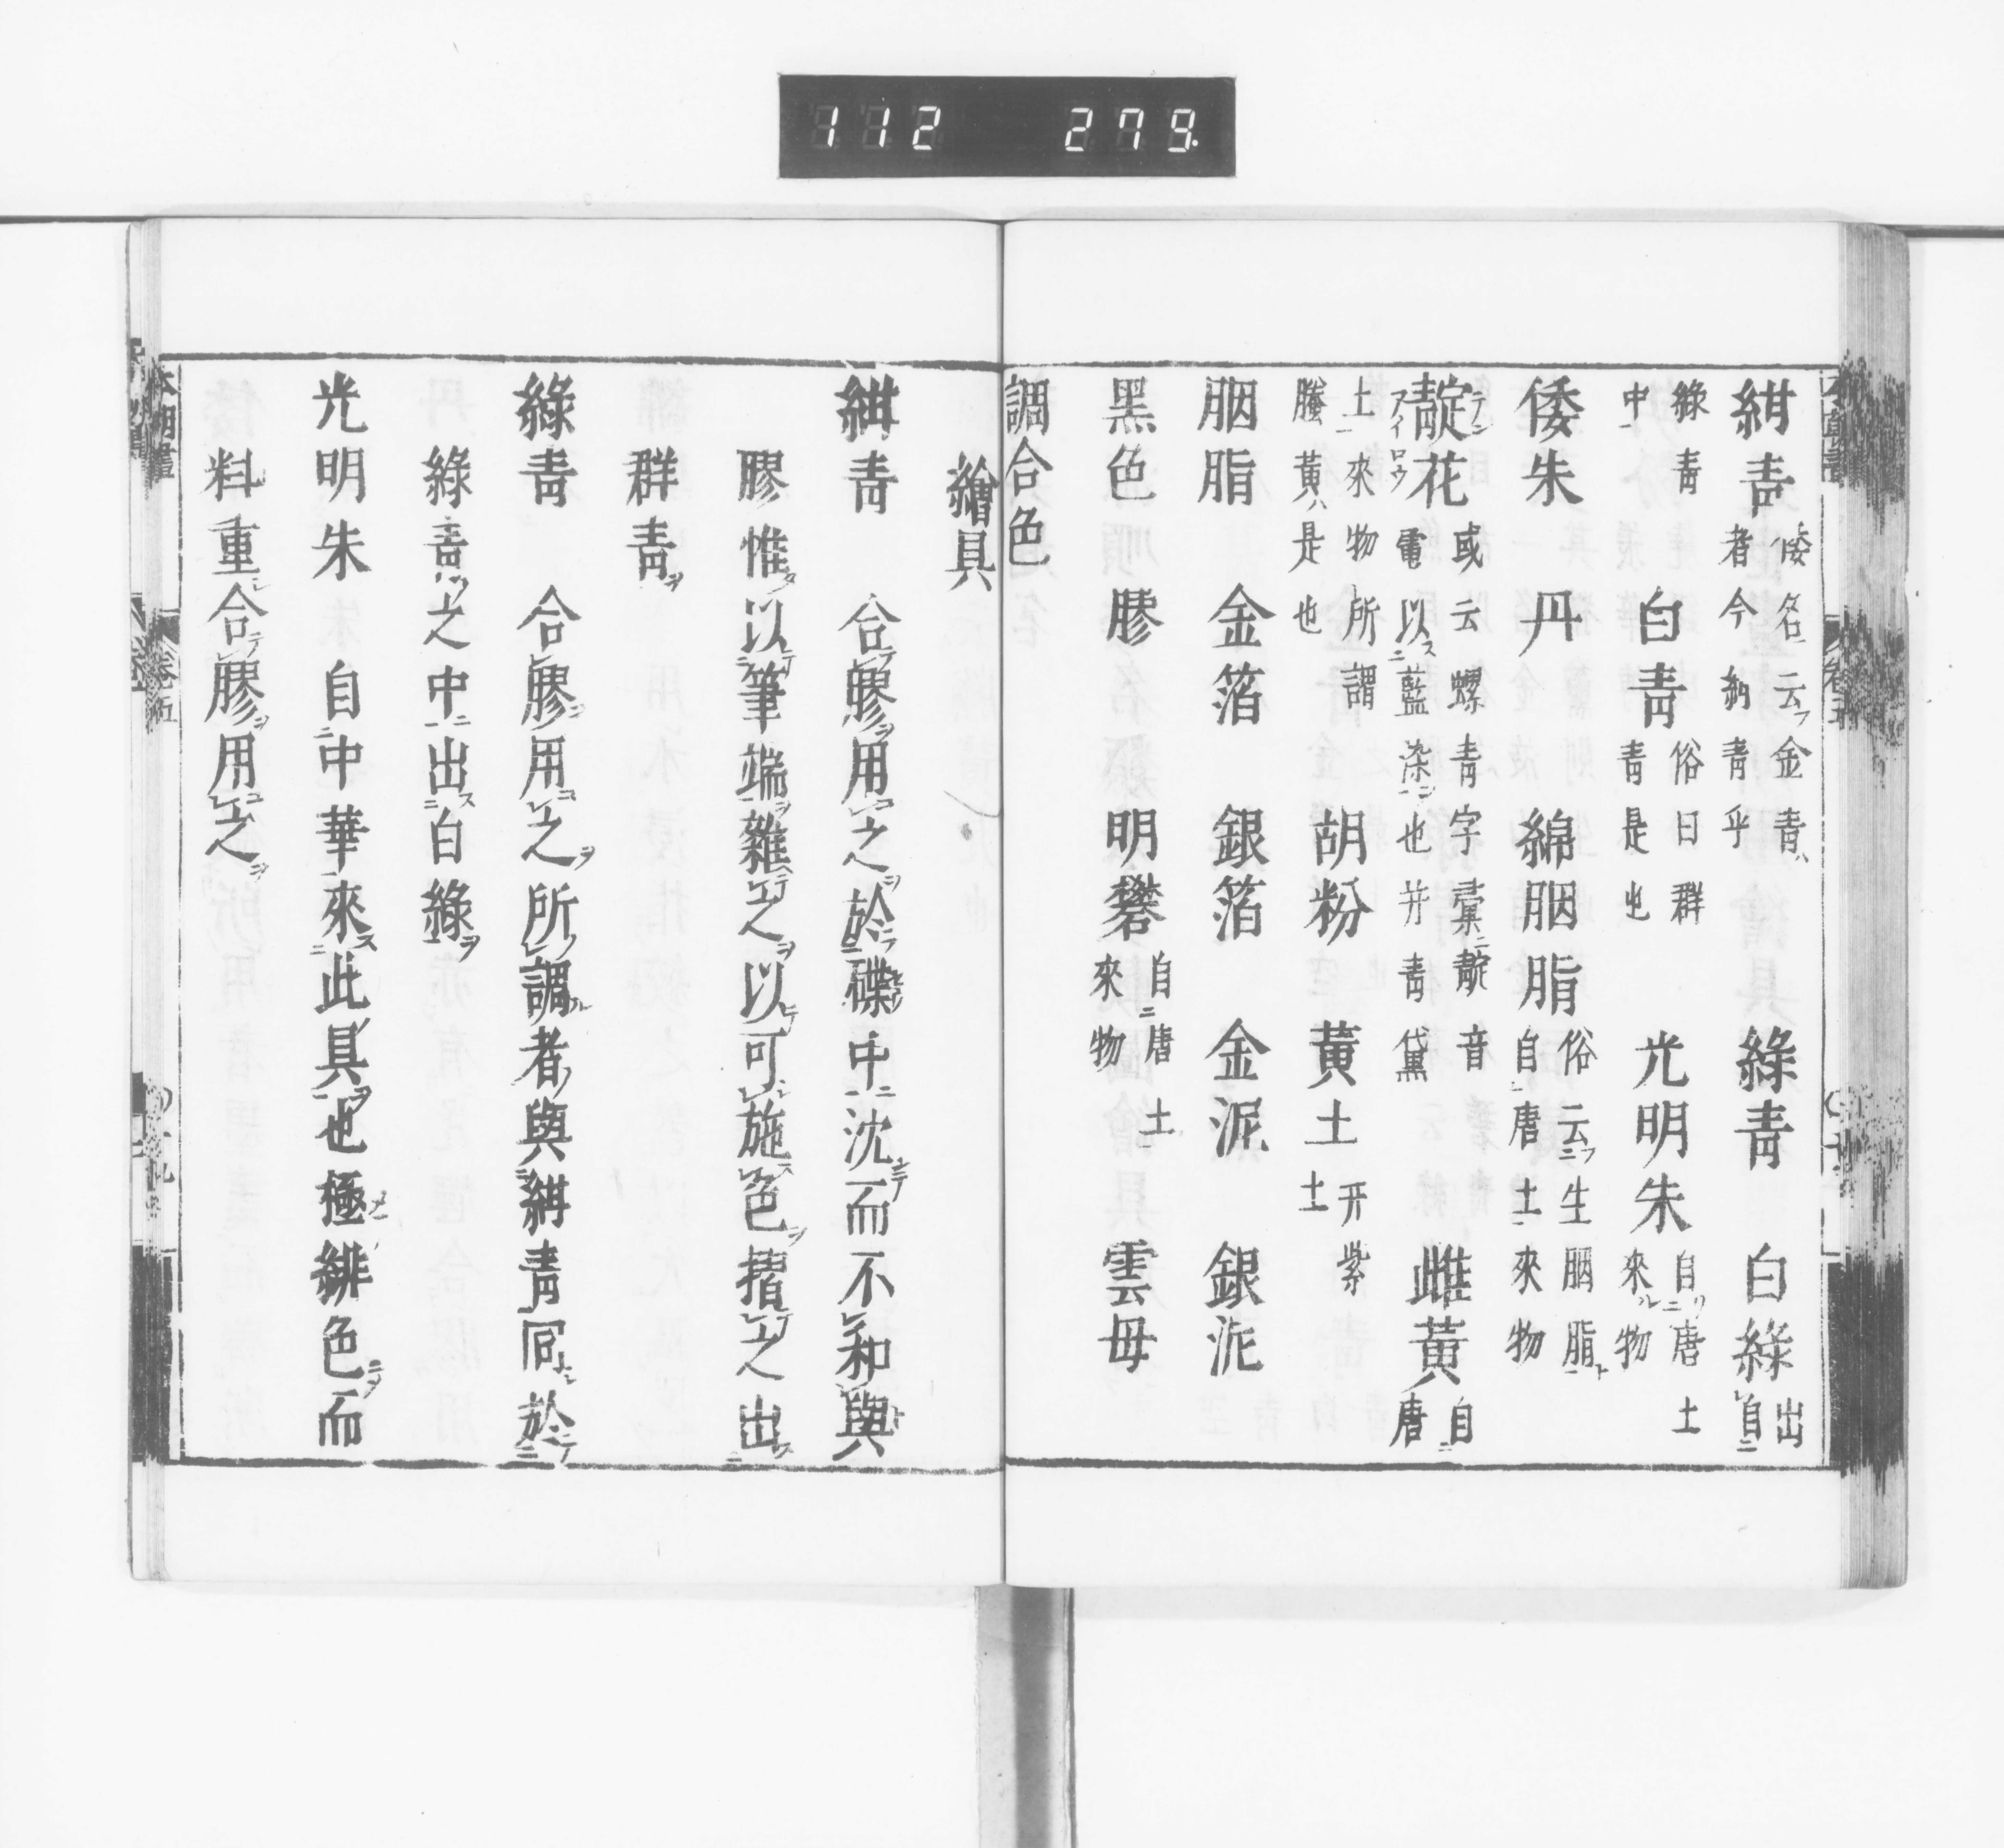 112 279
紺青 倭名云金青者今紺青乎 綠青 白綠 出自
綠青中 白青 俗曰群青是也 光明朱 自唐土來物
倭朱 丹 綿胭脂 俗云生胭脂自唐土來物
靛花 或云螺青字彙靛音電以藍染也并青黛 雌黃 自唐
土來物所謂騰黃是也 胡粉 黃土 幵紫土
胭脂 金箔 銀箔 金泥 銀泥
黑色 膠 明礬 自唐土來物 雲母
調合色
繪具
紺青 合膠用之於碟中沈而不和與
膠惟以筆端雜之以可施色摺之出
群青
綠青 合膠用之所謂者與紺青同於
綠音之中出白綠
光明朱 自中華來此具也極緋色而
料重合膠用之